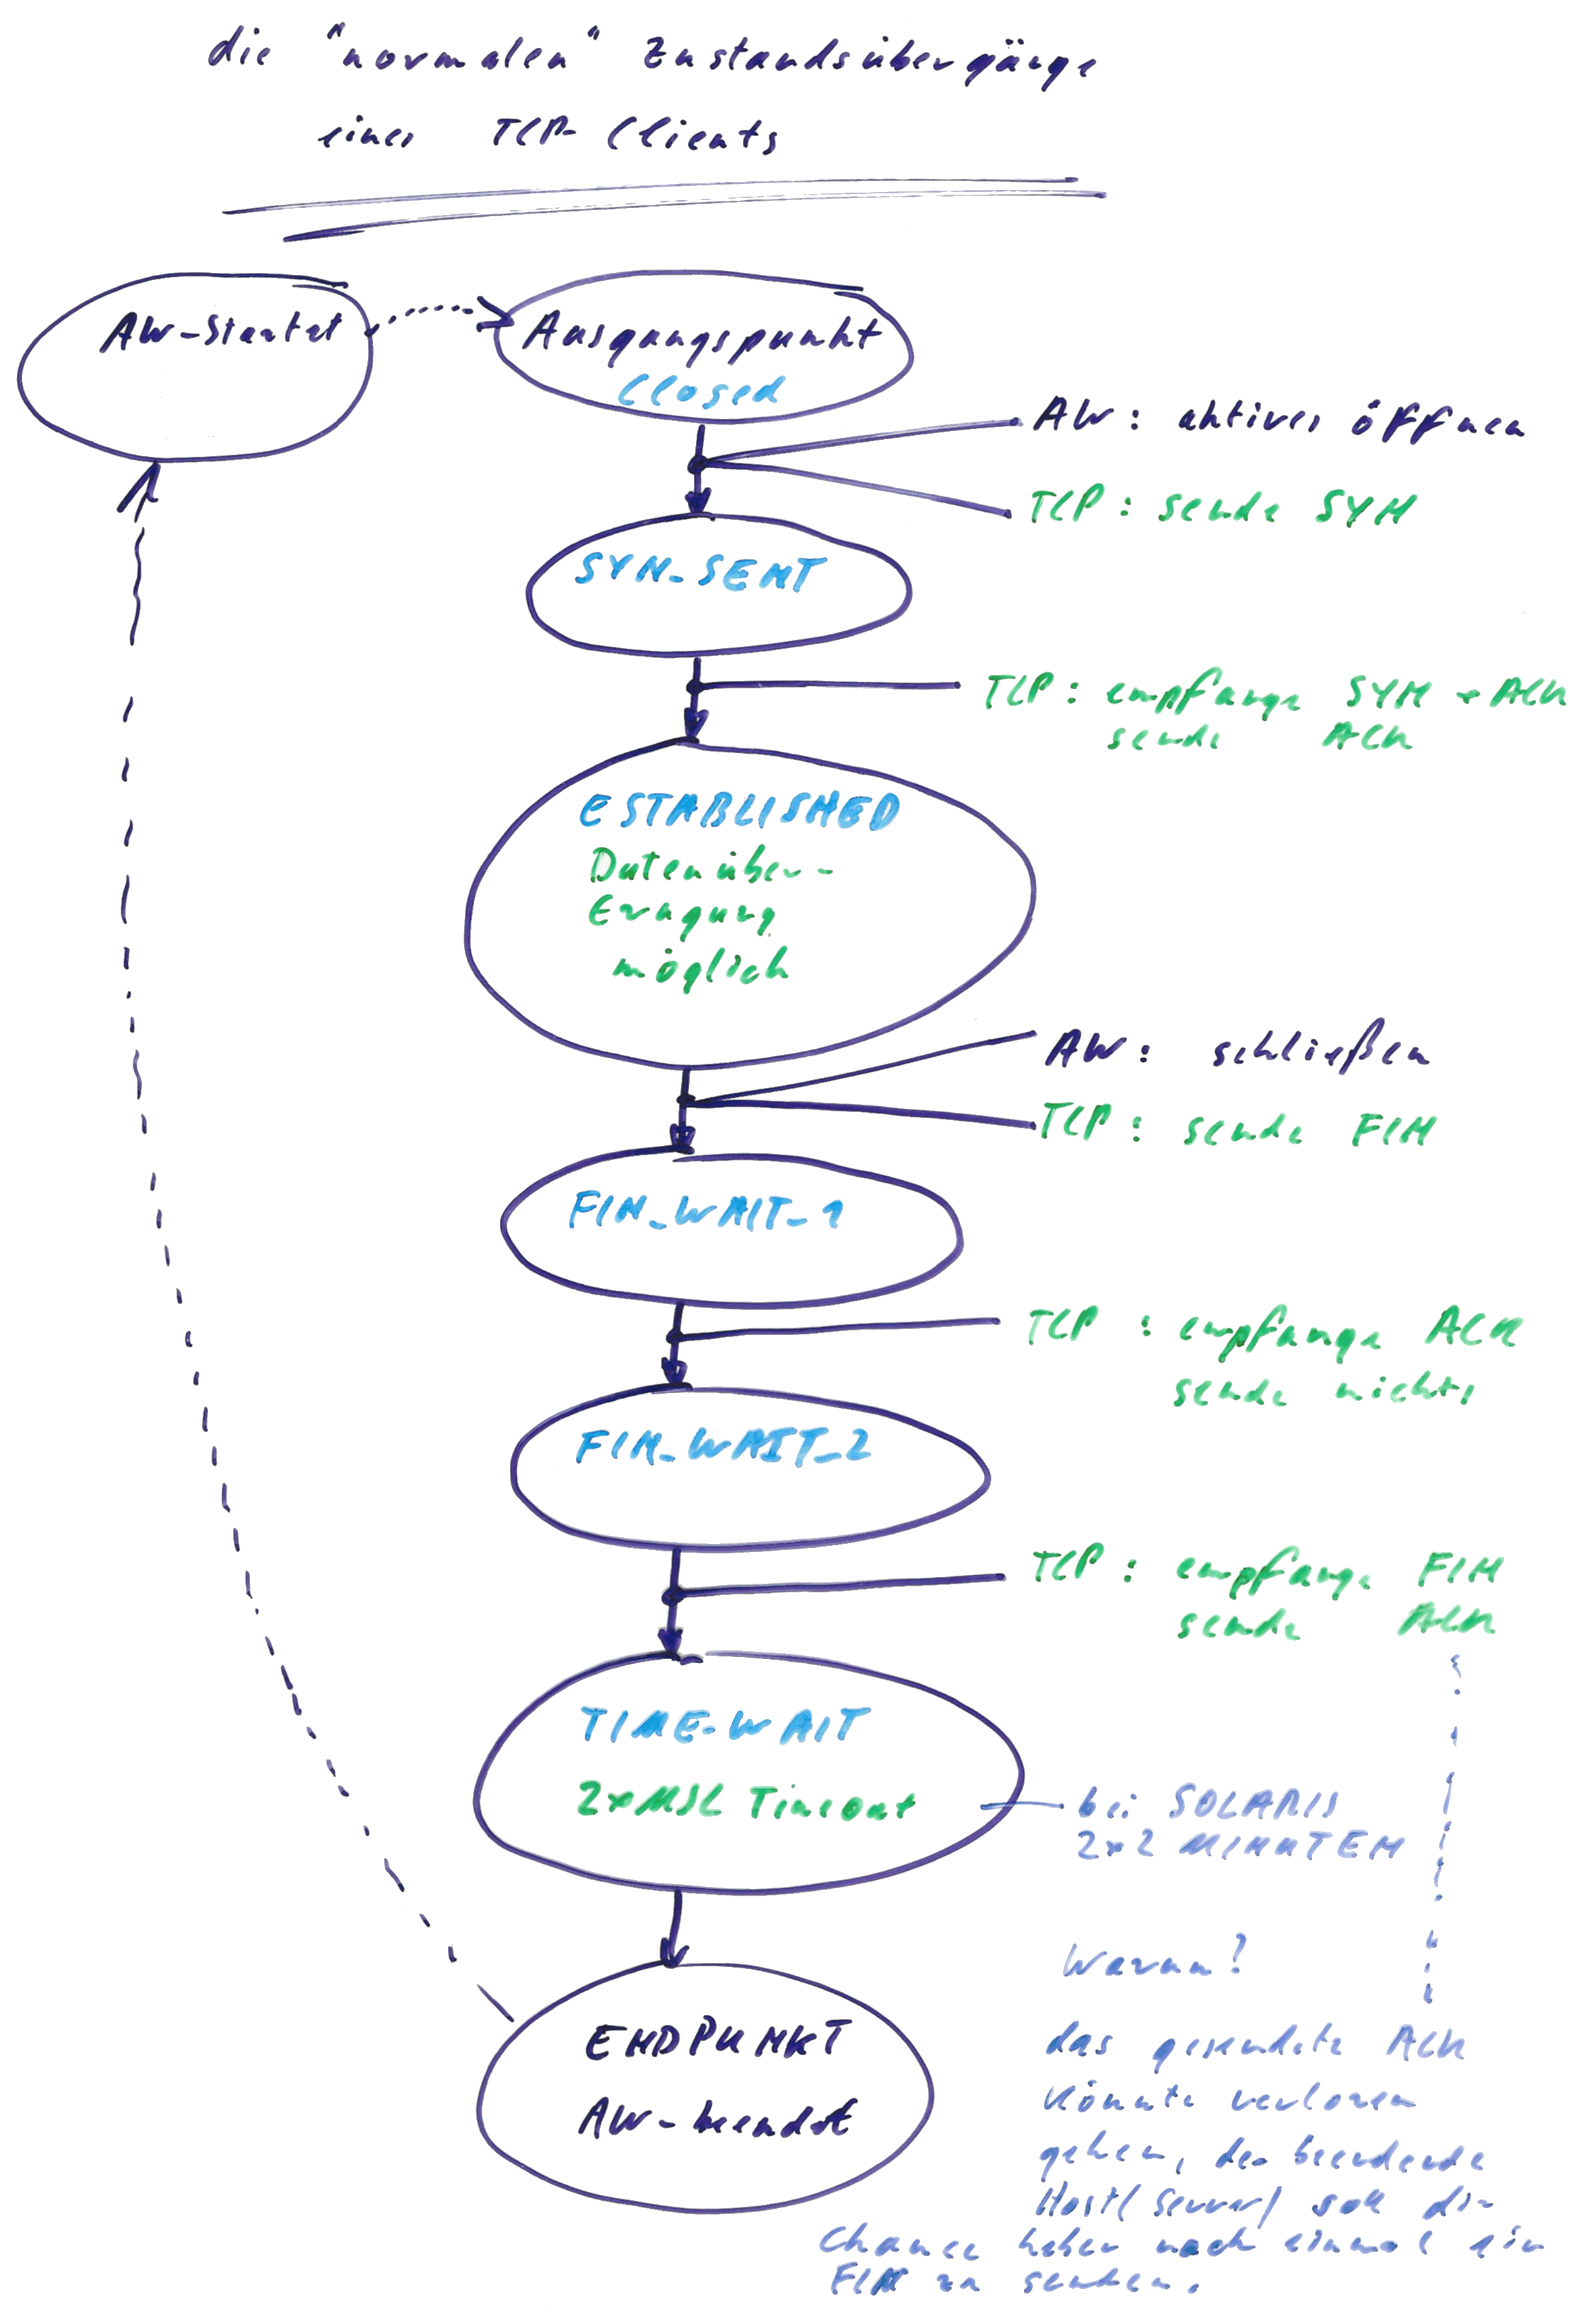 die "normalen" Zustandsübergänge
eines TCP-Clients
AW-Startet
Ausgangspunkt
Closed
AW: aktives öffnen
TCP: sende SYN
SYN_SENT
TCP: empfange SYN + ACK
sende ACK
ESTABLISHED
Datenüber-
tragung
möglich
AW: schließen
TCP: sende FIN
FIN_WAIT_1
TCP: empfange ACK
sende nichts
FIN_WAIT_2
TCP: empfange FIN
sende ACK
TIME-WAIT
2xMSL Timeout
bei SOLARIS
2x2 MINUTEN
ENDPUNKT
AW-beendet
Warum?
das gesendete ACK
könnte verloren
gehen, der beendende
Host(Server) soll die
Chance haben noch einmal ein
FIN zu senden.